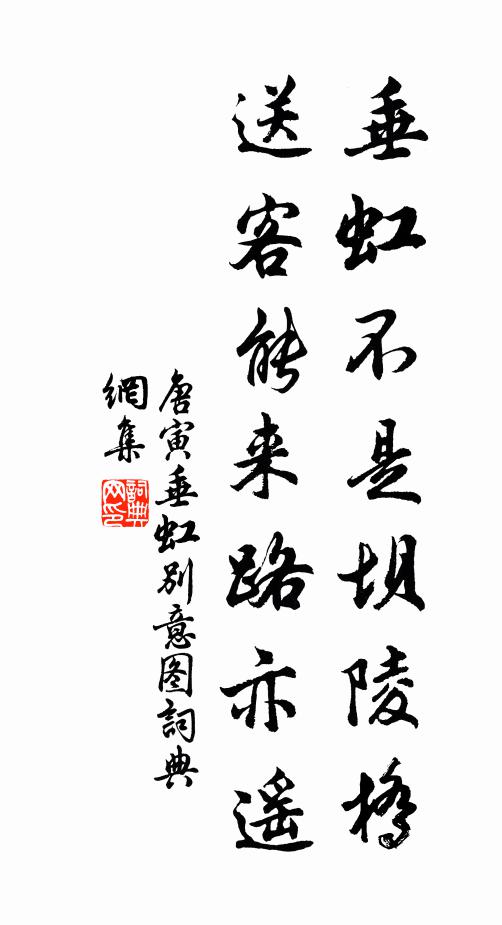 垂虹不是坝陵橋
送客能来路亦遥
唐寅垂虹别意图詞典
網集
詞典
网印